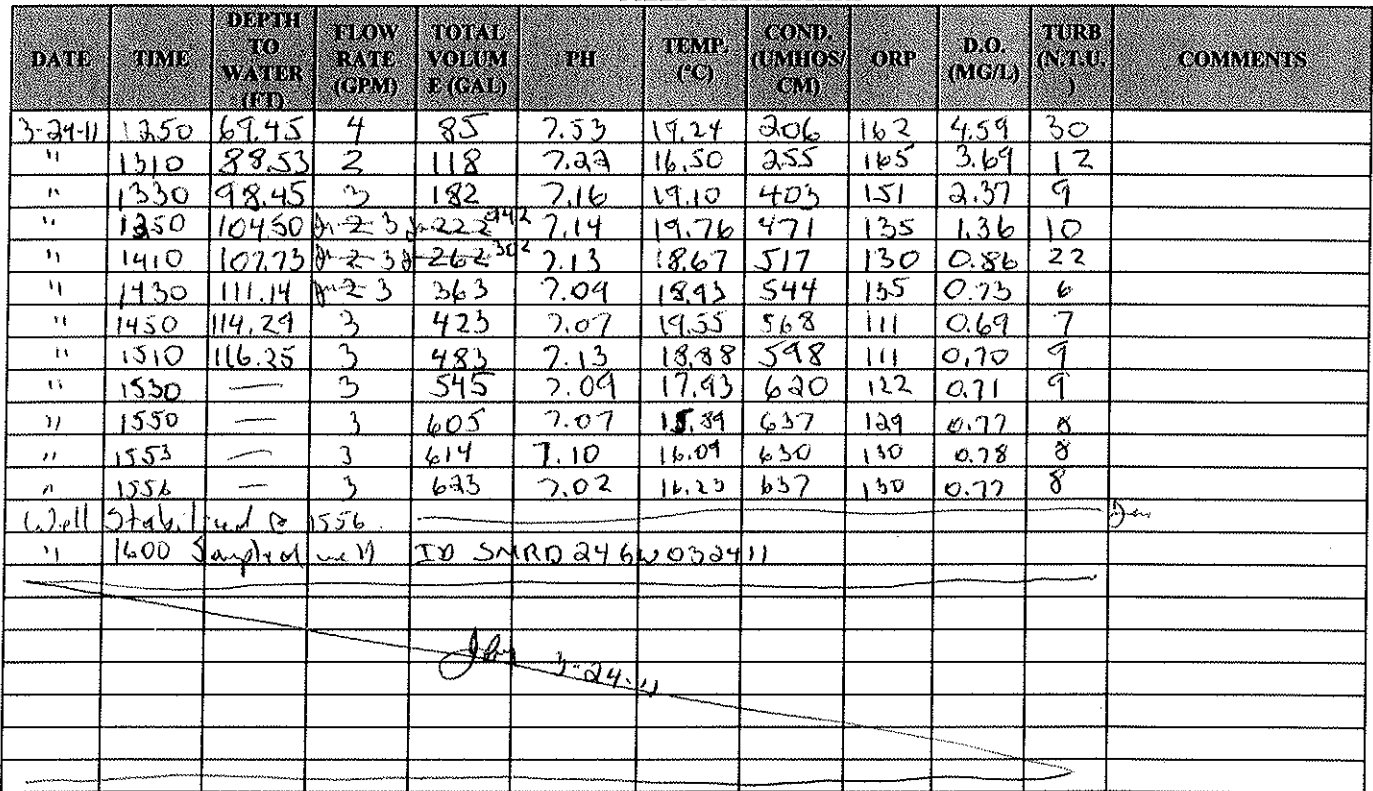 DATE TIME DEPTH TO WATER (FT) FLOW RATE (GPM) TOTAL VOLUM E (GAL) PH TEMP. (°C) COND. (UMHOS/ CM) ORP D.O. (MG/L) TURB (N.T.U. ) COMMENTS
3-24-11 1250 69.45 4 85 7.53 19.24 206 162 4.59 30
" 1310 88.53 2 118 7.22 16.50 255 165 3.69 12
" 1330 98.45 3 182 7.16 19.10 403 151 2.37 9
" 1350 104.50 2 3 222 242 7.14 19.76 471 135 1.36 10
" 1410 107.73 2 3 262 302 7.13 18.67 517 130 0.86 22
" 1430 111.14 2 3 363 7.09 18.93 544 135 0.73 6
" 1450 114.29 3 423 7.07 19.55 568 111 0.69 7
" 1510 116.25 3 483 7.13 18.88 598 111 0.70 9
" 1530 — 3 545 7.09 17.93 620 122 0.71 9
" 1550 — 3 605 7.07 15.89 637 129 0.77 8
" 1553 — 3 614 7.10 16.09 630 130 0.78 8
" 1556 — 3 623 7.02 16.23 637 130 0.77 8
Well Stabilized @ 1556
" 1600 Sampled well ID SMRD24GW032411
3-24-11